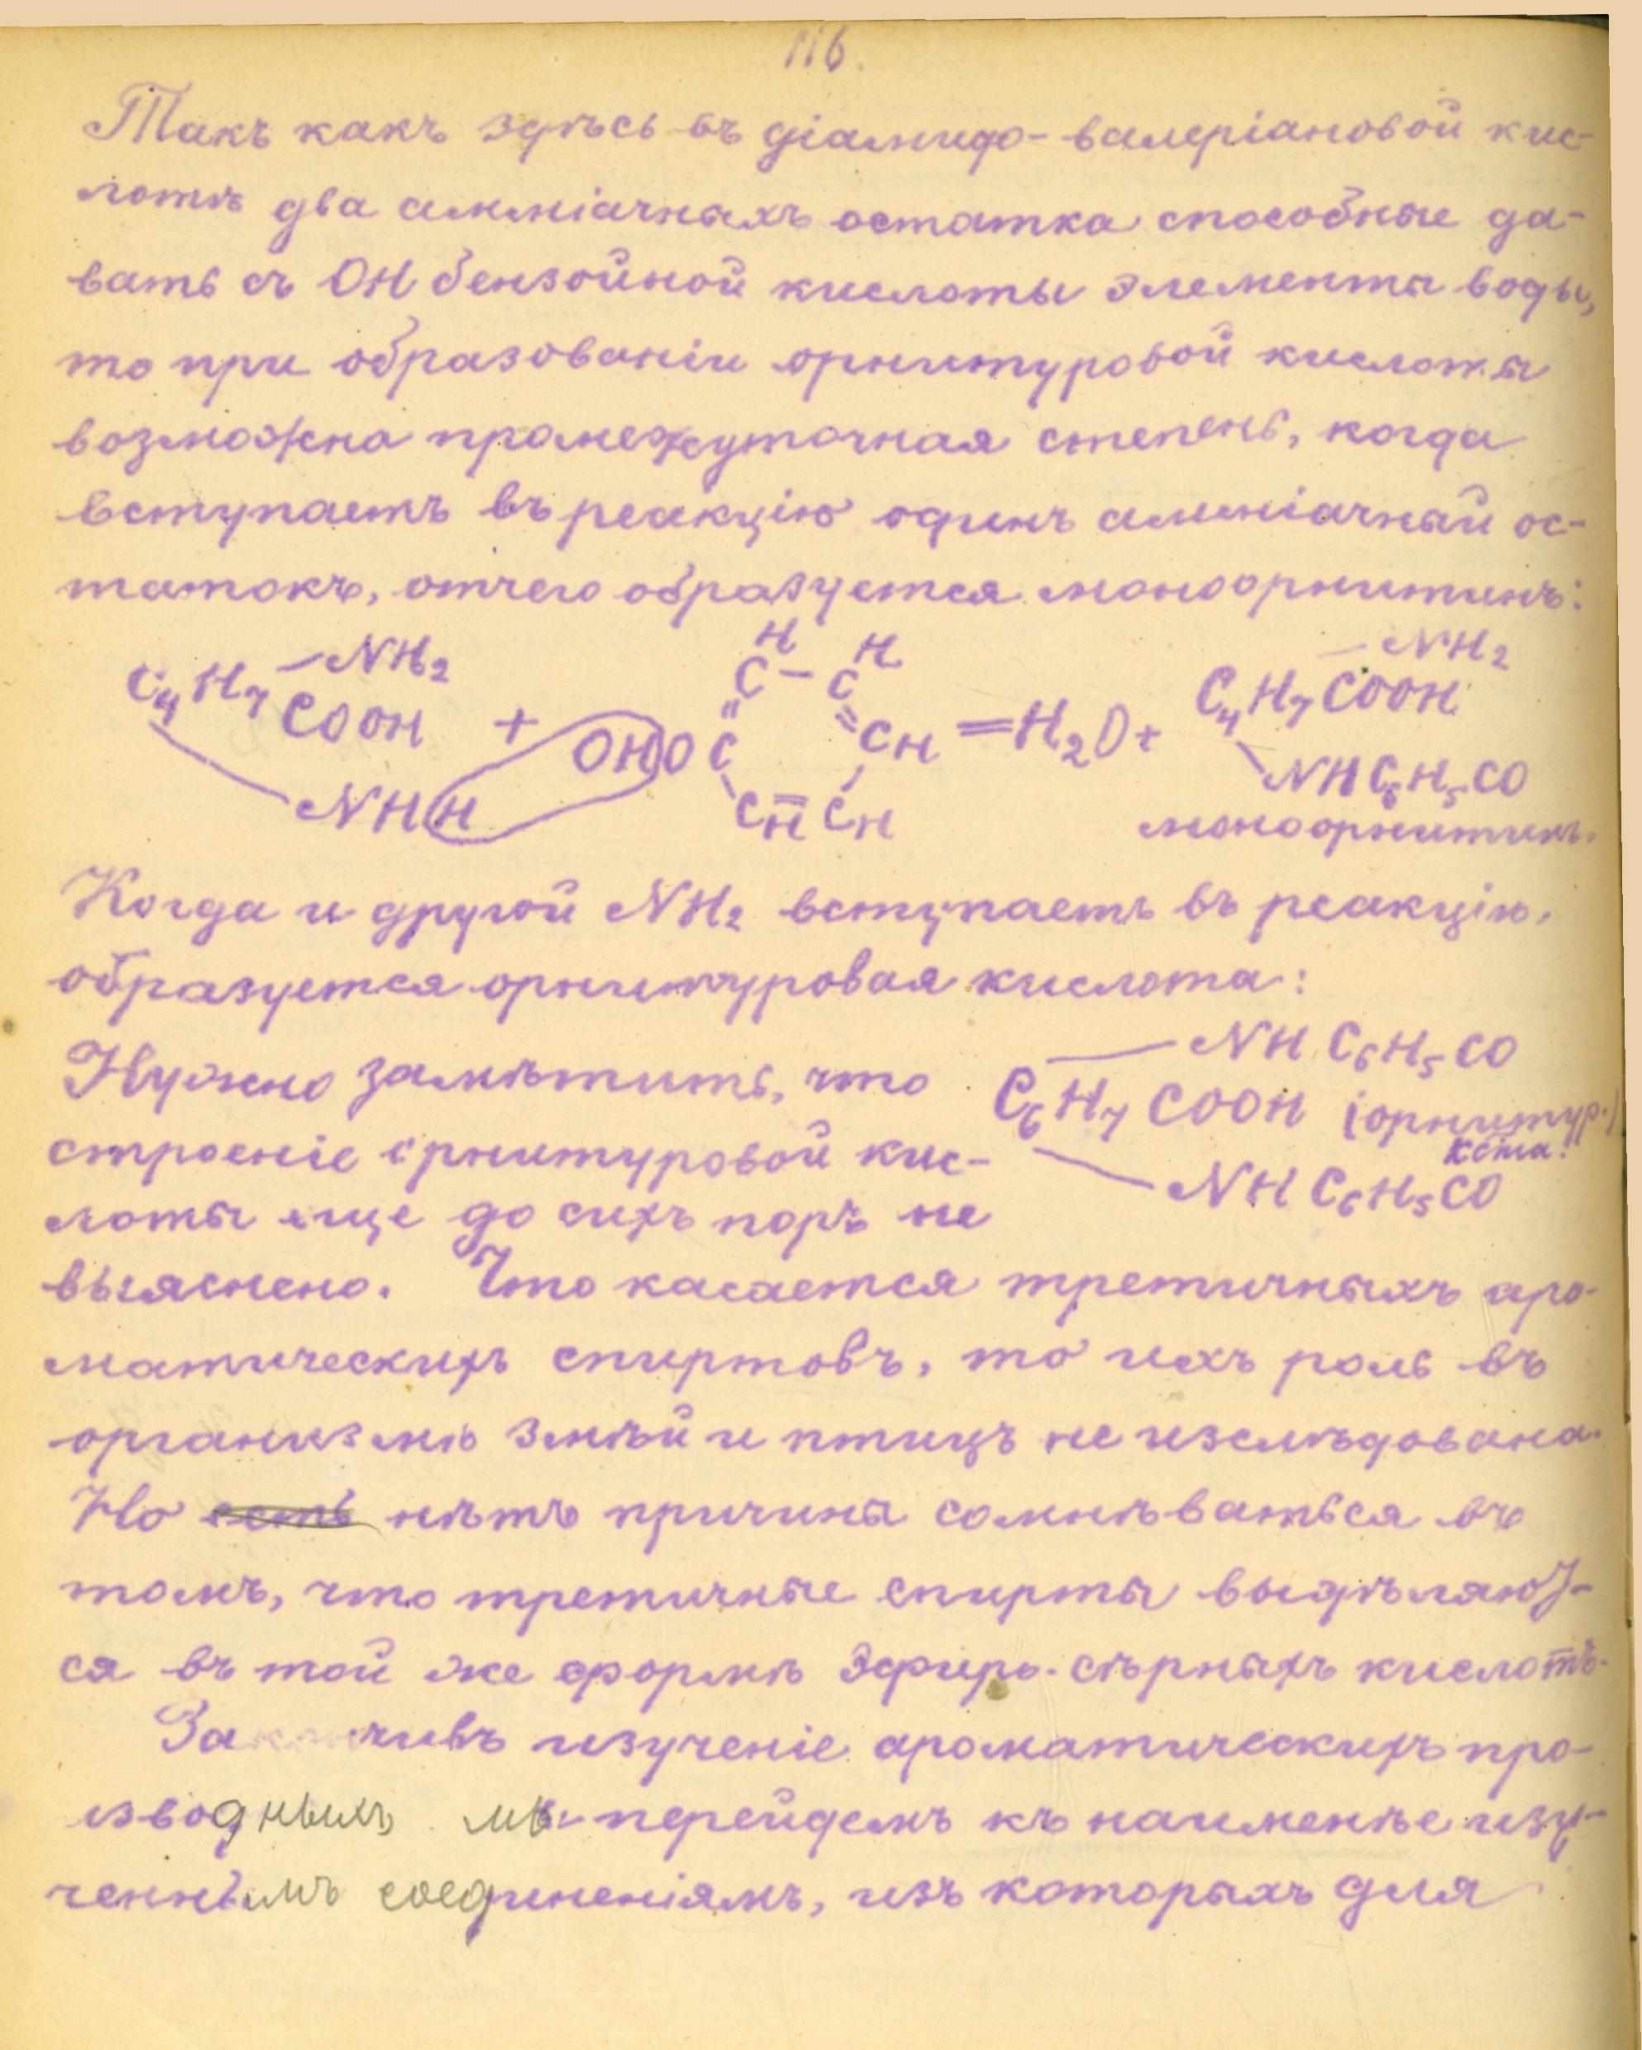 116.
Такъ какъ здѣсь въ діамидо-валеріановой кис-
лотѣ два амміачныхъ остатка способные да-
вать съ ОН бензойной кислоты элементы воды,
то при образованіи орнитуровой кислоты
возможна промежуточная степень, когда
вступаетъ въ реакцію одинъ амміачный ос-
татокъ, отчего образуется моноорнитинъ:
C4H7 –NH2 COOH NHH + OHOC C H – C H = CH CH = CH = H2O + C4H7 –NH2 COOH NHC6H5CO
моноорнитинъ.
Когда и другой NH2 вступаетъ въ реакцію,
образуется орнитуровая кислота:
NH C6H5CO
Нужно замѣтить, что
C6H7 COOH (орнитур.
кста.)
строеніе орнитуровой кис-
NH C6H5CO
лоты еще до сихъ поръ не
выяснено. Что касается третичныхъ аро-
матическихъ спиртовъ, то ихъ роль въ
организмѣ змѣй и птицъ не изслѣдована.
Но есть нѣтъ причины сомнѣваться въ
томъ, что третичные спирты выдѣляют-
ся въ той же формѣ эфиро-сѣрныхъ кислотъ.
Закончивъ изученіе ароматическихъ про-
изводныхъ мы перейдемъ къ наименѣе изу-
ченнымъ соединеніямъ, изъ которыхъ для